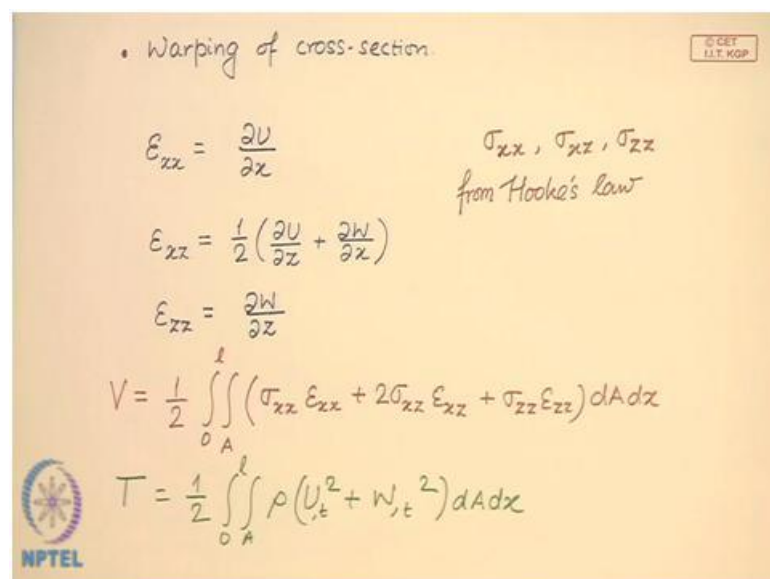 • Warping of cross-section.
© CET
I.I.T. KGP
ε_xx = ∂U/∂x
σ_xx, σ_xz, σ_zz
from Hooke's law
ε_xz = 1/2 (∂U/∂z + ∂W/∂x)
ε_zz = ∂W/∂z
V = 1/2 ∫_0^l ∫_A (σ_xx ε_xx + 2σ_xz ε_xz + σ_zz ε_zz) dA dx
T = 1/2 ∫_0^l ∫_A ρ(U,_t^2 + W,_t^2) dA dx
NPTEL